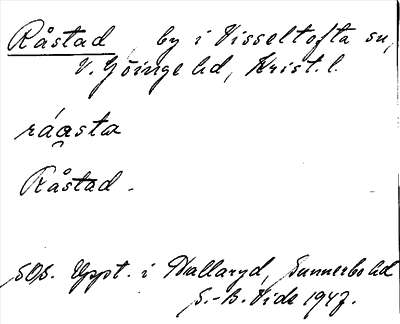 Råstad, by i Visseltofta sn,
V. Göinge hd, Krist. l.
ráasta
Råstad.
SOS. Uppt. i Hallaryd, Sunnerbo hd
S.-B. Vide 1947.